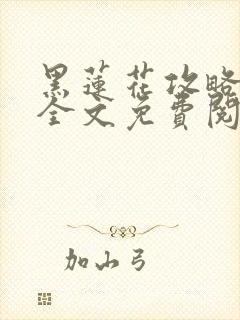 黑莲花攻略
全文免費閱
加山弓